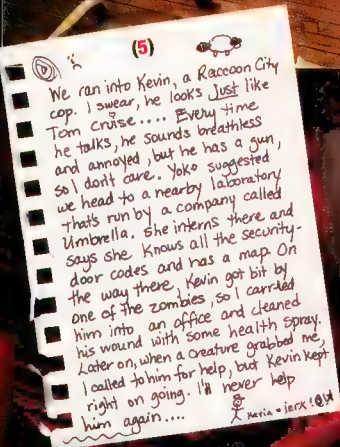 (5)
We ran into Kevin, a Raccoon City
cop. I swear, he looks just like
Tom Cruise.... Every time
he talks, he sounds breathless
and annoyed, but he has a gun,
so I don't care. Yoko suggested
we head to a nearby laboratory
that's run by a company called
Umbrella. She interns there and
says she knows all the security-
door codes and has a map. On
the way there, Kevin got bit by
one of the zombies, so I carried
him into an office and cleaned
his wound with some health spray.
Later on, when a creature grabbed me,
I called to him for help, but Kevin kept
right on going. I'll never help
him again....
Kevin = jerk!